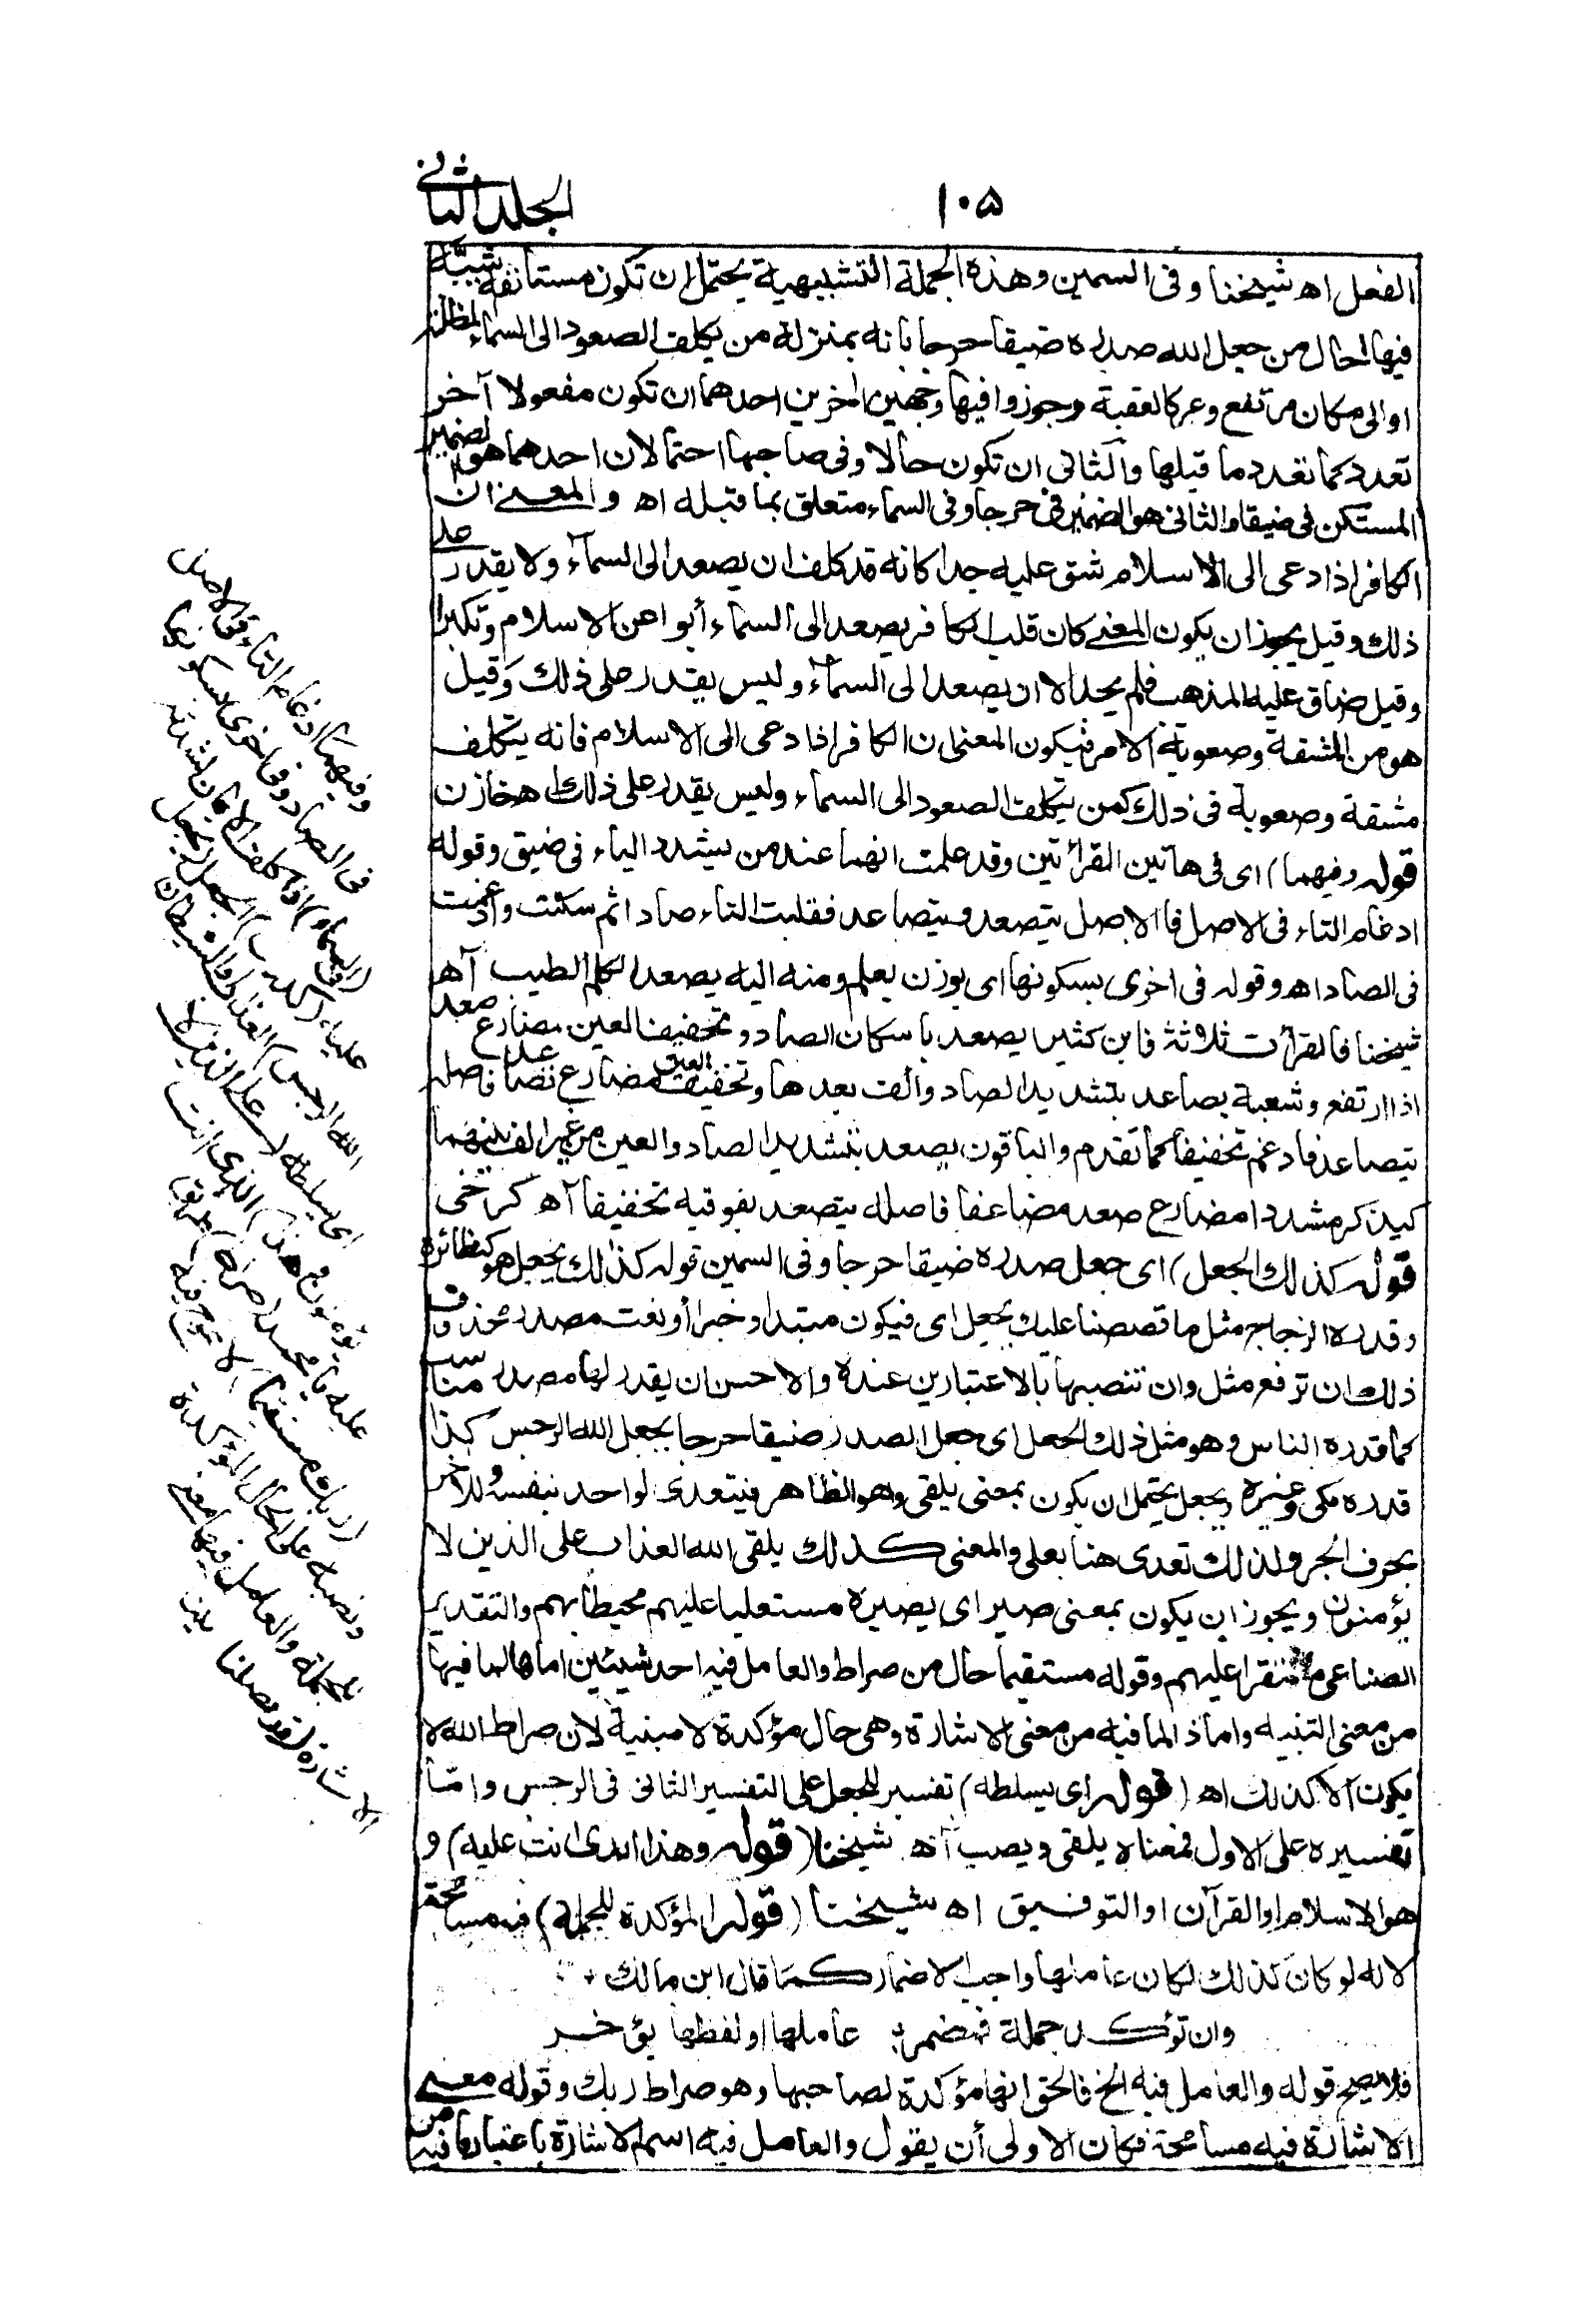 ١٠۵
الجلد الثانی
الفعل اه شیخنا وفی السمین وهذه الجملة التشبیهیة یحتمل ان تکون مستأنفة شبّه
فیها حال من جعل الله صدره ضیقا حرجا بانه بمنزلة من یکلف الصعود الی السماء المظلة
او الی مکان مرتفع وعر کالعقبة وجوزوا فیها وجهین اخرین احدهما ان تکون مفعولا آخر
تعدد کما تعدد ما قبلها والثانی ان تکون حالا وفی صاحبها احتمالان احدهما هو الضمیر
المستکن فی ضیقا والثانی هو الضمیر فی حرجا وفی السماء متعلق بما قبله اه والمعنی ان
الکافر اذا دعی الی الاسلام شق علیه جدا کانه قد کلف ان یصعد الی السماء ولا یقدر علی
ذلك وقیل یجوز ان یکون المعنی کان قلب الکافر یصعد الی السماء أبوا عن الاسلام وتکبرا
وقیل ضاق علیه المذهب فلم یجد الا ان یصعد الی السماء ولیس یقدر علی ذلك وقیل
هو من المشقة وصعوبة الامر فیکون المعنی ان الکافر اذا دعی الی الاسلام فانه یتکلف
مشقة وصعوبة فی ذلك کمن یتکلف الصعود الی السماء ولیس یقدر علی ذلك اه خازن
قوله وفیهما) ای فی هاتین القرائتین وقد علمت انهما عند من یشدد الیاء فی ضیق وقوله
ادغام التاء فی الاصل فالاصل یتصعد ویتصاعد فقلبت التاء صادا ثم سکنت وادغمت
فی الصاد اه وقوله فی اخری بسکونها ای بوزن یعلم ومنه الیه یصعد الکلم الطیب آه
شیخنا فالقرأت ثلاثة فابن کثیر یصعد باسکان الصاد وتخفیف العین مضارع صعد
اذا ارتفع وشعبة یصاعد بتشدید الصاد والف بعدها وتخفیف العین مضارع تصاعد فاصله
یتصاعد فادغم تخفیفا کما تقدم والباقون یصعد بتشدید الصاد والعین من غیر الف بینهما
کیذکر مشددا مضارع صعد مضاعفا فاصله یتصعد بفوقیه تخفیفا آه کرخی
قوله کذلك الجعل) ای جعل صدره ضیقا حرجا وفی السمین قوله کذلك یجعل هو کنظائره
وقدره الزجاج مثل ما قصصنا علیك یجعل ای فیکون مبتدا وخبرا أو نعت مصدر محذوف
ذلك ان ترفع مثل وان تنصبها بالاعتبارین عنده والاحسن ان یقدر لها مصدر مناسب
کما قدره الناس وهو مثل ذلك الجعل ای جعل الصدر ضیقا حرجا یجعل الله الرجس کذا
قدره مکی وغیره ویجعل یحتمل ان یکون بمعنی یلقی وهو الظاهر فیتعدی لواحد بنفسه وللآخر
بحرف الجر ولذلك تعدی هنا بعلی والمعنی کذلك یلقی الله العذاب علی الذین لا
یؤمنون ویجوز ان یکون بمعنی صیر ای یصیره مستعلیا علیهم محیطا بهم والتقدیر
الصناعی مستقرا علیهم وقوله مستقیما حال من صراط والعامل فیه احد شیئین اما ها لما فیها
من معنی التنبیه واما ذا لما فیه من معنی الاشارة وهی حال مؤکدة لا مبنیة لان صراط الله لا
یکون الا کذلك اه (قوله ای یسلطه) تفسیر للجعل علی التفسیر الثانی فی الرجس وامّا
تفسیره علی الاول فمعناه یلقی ویصب آه شیخنا (قوله وهذا الذی انت علیه) و
هو الاسلام او القرآن او التوفیق اه شیخنا (قوله المؤکدة للجملة) فیه مسامحة
لانه لو کان کذلك لکان عاملها واجب الاضمار کما قال ابن مالك
وان تؤکد جملة فمضمر عاملها ولفظها یؤخر
فلا یصح قوله والعامل فیه الخ فالحق انها مؤکدة لصاحبها وهو صراط ربك وقوله معنی
الاشارة فیه مسامحة فکان الاولی أن یقول والعامل فیه اسم الاشارة باعتبار ما فیه من
وفیهما ادغام التاء فی الاصل
فی الصاد وفی اخری بسکونها
(فی السماء) اذا کلف الایمان لشدته
علیه (کذلك) الجعل (یجعل
الله الرجس) العذاب او الشیطان
ای یسلطه (علی الذین لا
یؤمنون وهذا) الذی انت
علیه یا محمد (صراط) طریق
(ربك مستقیما) لا عوج فیه
ونصبه علی الحال المؤکدة
للجملة والعامل فیها معنی
الاشارة (قد فصلنا) بینا